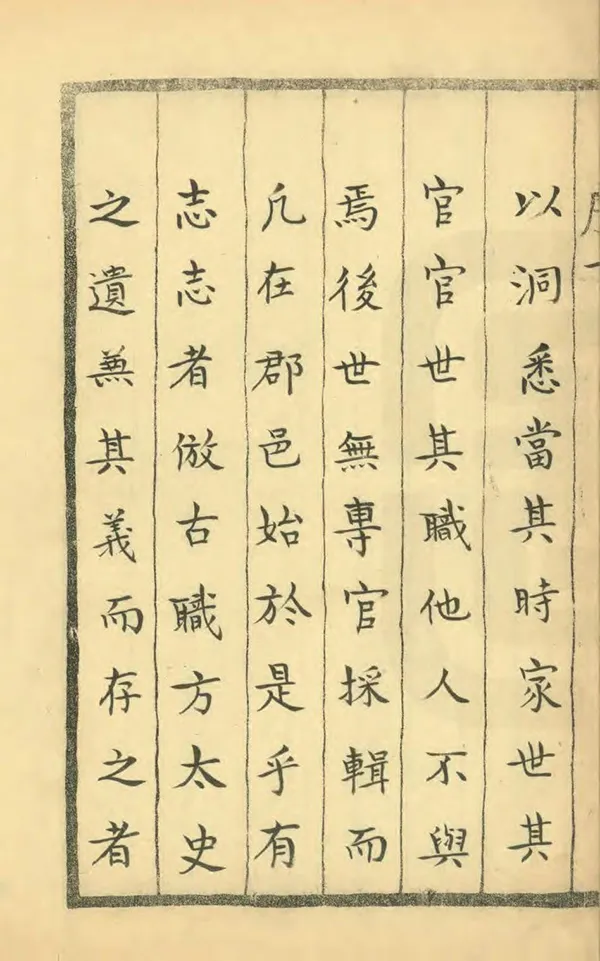 以洞悉當其時家世其
官官世其職他人不與
焉後世無專官採輯而
凡在郡邑始於是乎有
志志者倣古職方太史
之遺兼其義而存之者